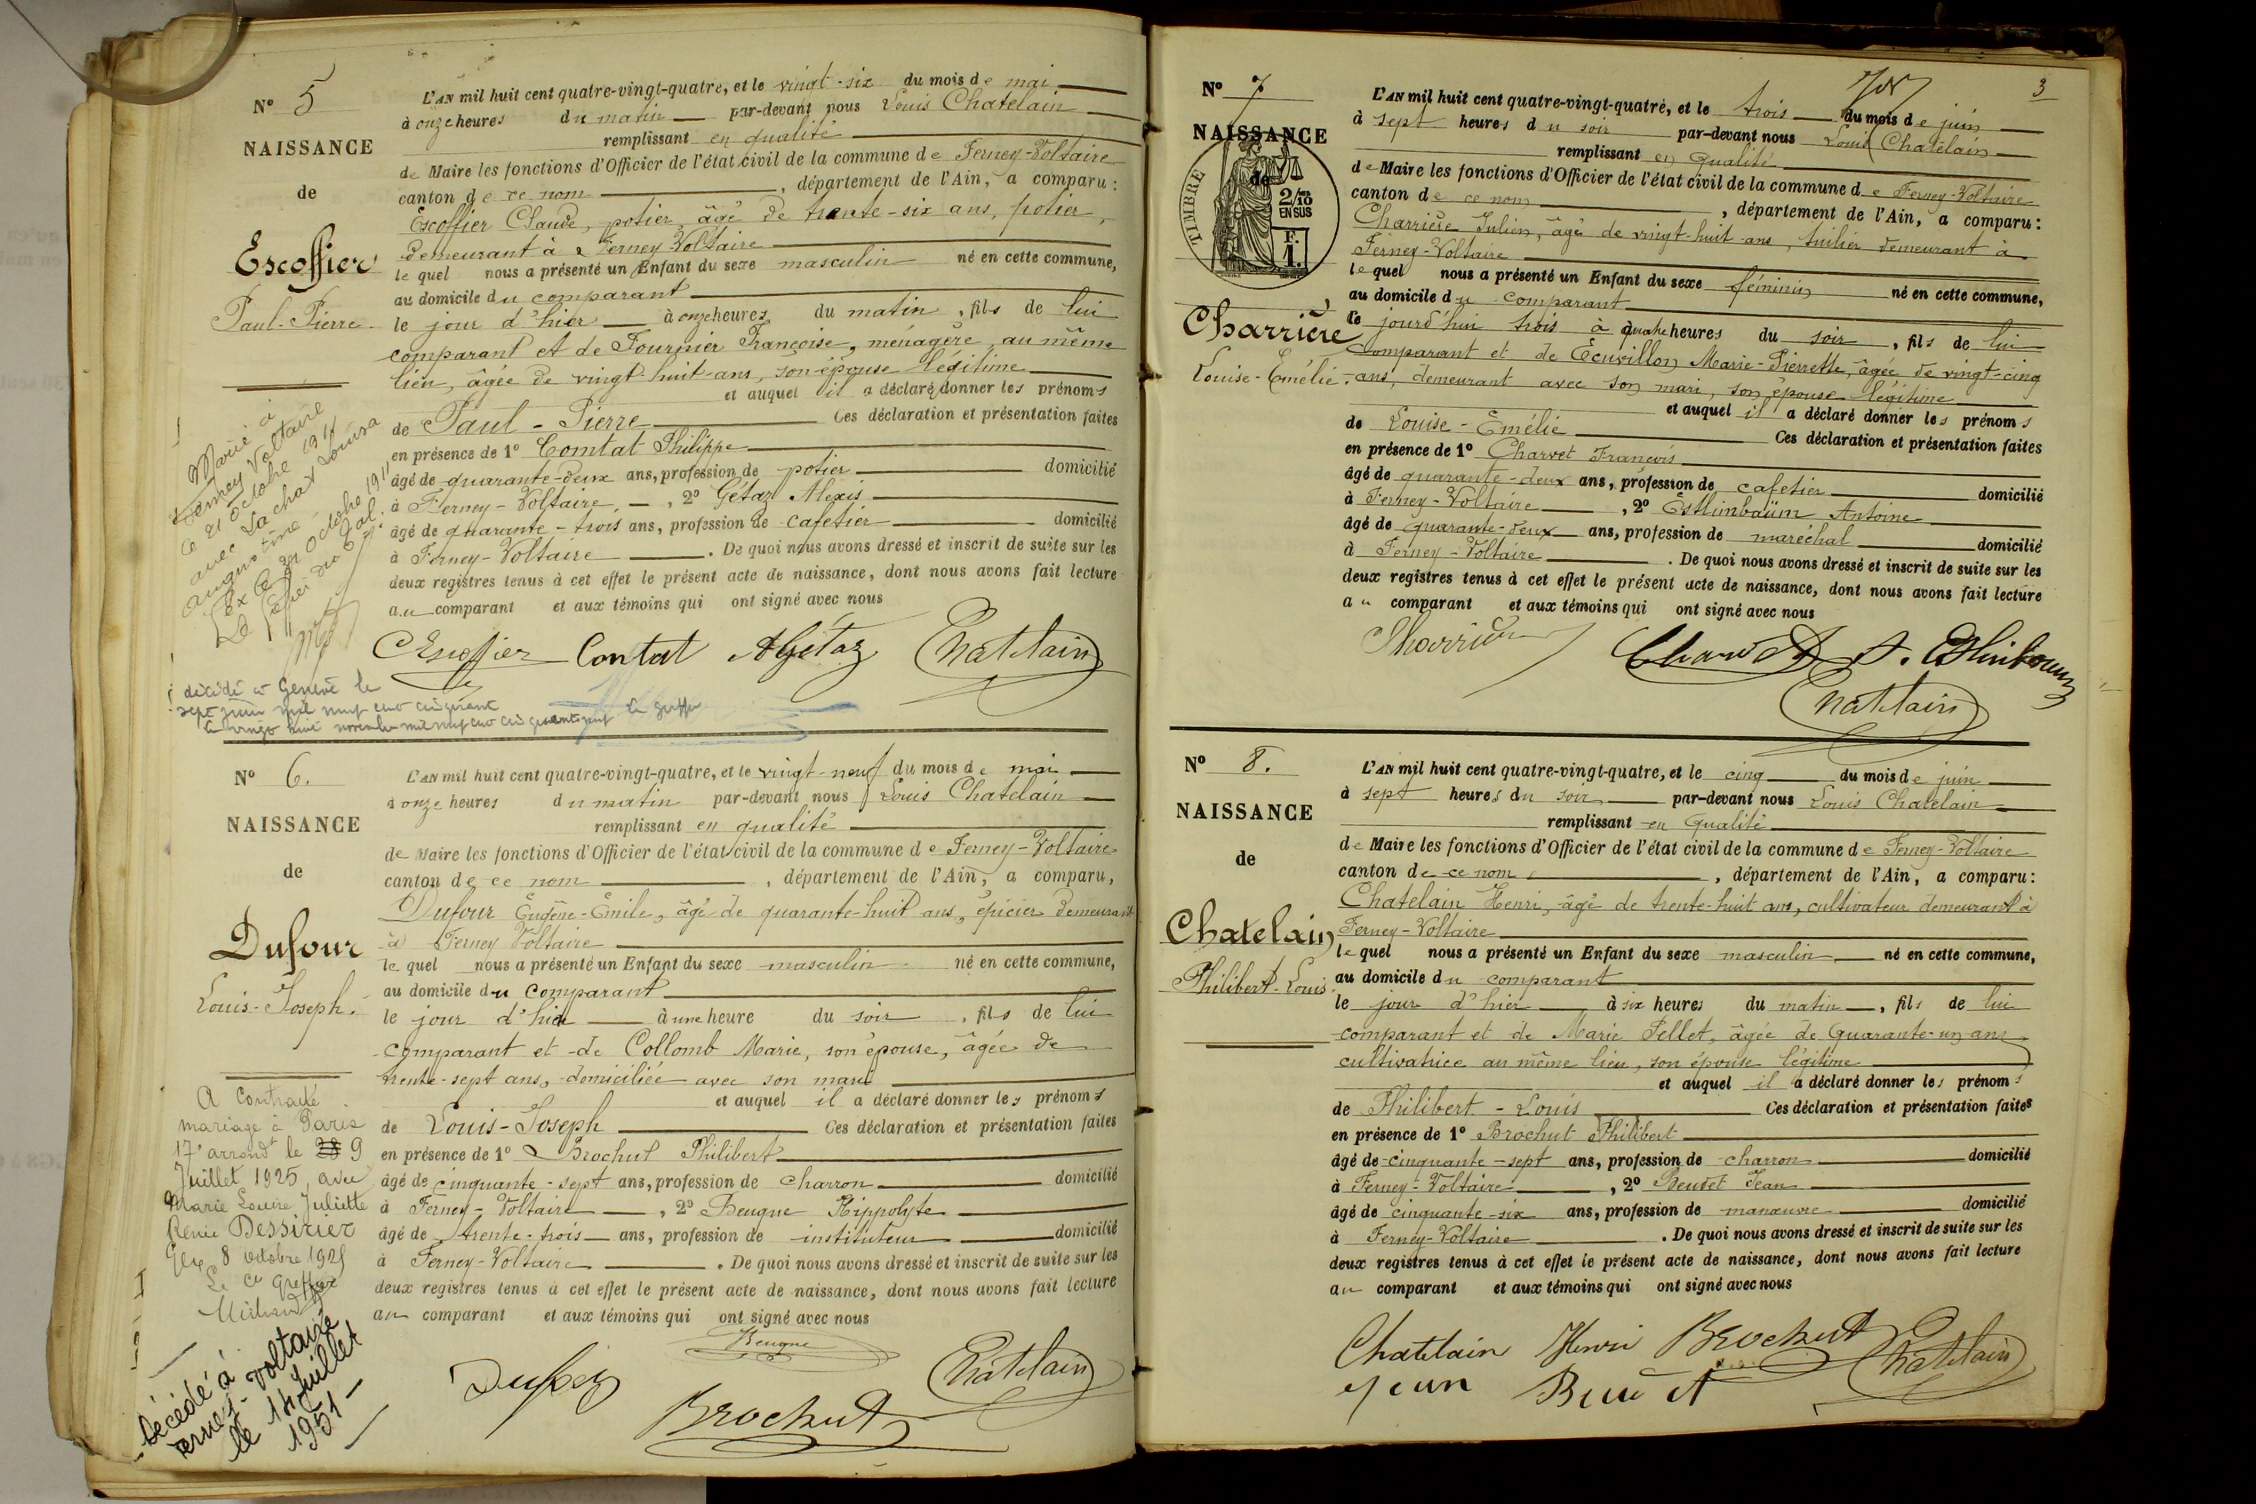 N° 5
NAISSANCE
de
Escoffier
Paul-Pierre
L'AN mil huit cent quatre-vingt-quatre, et le vingt-six du mois de mai
à onze heures du matin par-devant nous Louis Chatelain
remplissant en qualité
de Maire les fonctions d'Officier de l'état civil de la commune de Ferney-Voltaire
canton de ce nom, département de l'Ain, a comparu:
Escoffier Claude, potier, âgé de trente-six ans, potier,
demeurant à Ferney-Voltaire
lequel nous a présenté un Enfant du sexe masculin né en cette commune,
au domicile du comparant
le jour d'hier à onze heures du matin, fils de lui
comparant et de Fournier Françoise, ménagère, au même
lieu, âgée de vingt-huit ans, son épouse légitime
et auquel il a déclaré donner les prénoms
de Paul-Pierre Ces déclaration et présentation faites
en présence de 1° Comtat Philippe
âgé de quarante-deux ans, profession de potier domicilié
à Ferney-Voltaire, 2° Gétaz Alexis
âgé de quarante-trois ans, profession de cafetier domicilié
à Ferney-Voltaire. De quoi nous avons dressé et inscrit de suite sur les
deux registres tenus à cet effet le présent acte de naissance, dont nous avons fait lecture
au comparant et aux témoins qui ont signé avec nous
Escoffier Contat A Gétaz Chatelain
Marié à
Ferney Voltaire
le 21 Octobre 1911
avec Lachat Louisa
Augustine
Gex le 29 Octobre 1911
Le
décédé à Genève le
sept juin mil neuf cent cinquante
le vingt huit novembre mil neuf cent cinquante neuf le greffier
N° 6.
NAISSANCE
de
Dufour
Louis-Joseph.
L'AN mil huit cent quatre-vingt-quatre, et le vingt-neuf du mois de mai
à onze heures du matin par-devant nous Louis Chatelain
remplissant en qualité
de Maire les fonctions d'Officier de l'état civil de la commune de Ferney-Voltaire
canton de ce nom, département de l'Ain, a comparu,
Dufour Eugène-Emile, âgé de quarante-huit ans, épicier demeurant
à Ferney Voltaire
lequel nous a présenté un Enfant du sexe masculin né en cette commune,
au domicile du comparant
le jour d'hier à une heure du soir, fils de lui
comparant et de Collomb Marie, son épouse, âgée de
trente-sept ans, domiciliée avec son mari
et auquel il a déclaré donner les prénoms
de Louis-Joseph Ces déclaration et présentation faites
en présence de 1° Brochut Philibert
âgé de cinquante-sept ans, profession de charron domicilié
à Ferney-Voltaire, 2° Beugne Hippolyte
âgé de trente-trois ans, profession de instituteur domicilié
à Ferney-Voltaire. De quoi nous avons dressé et inscrit de suite sur les
deux registres tenus à cet effet le présent acte de naissance, dont nous avons fait lecture
au comparant et aux témoins qui ont signé avec nous
Beugne
Dufour Brochut Chatelain
A contracté
mariage à Paris
17e arrondt le 28 9
Juillet 1925 avec
Marie Louise Juliette
Renée Dessirier
Gex 8 octobre 1925
Le Greffier
Décédé à
Ferney-Voltaire
le 14 Juillet
1951
3
N° 7
NAISSANCE
de
TIMBRE
2/10
EN SUS
F.
1.
Charrière
Louise-Emélie
L'AN mil huit cent quatre-vingt-quatre, et le trois du mois de juin
à sept heures du soir par-devant nous Louis Chatelain
remplissant en qualité
de Maire les fonctions d'Officier de l'état civil de la commune de Ferney-Voltaire
canton de ce nom, département de l'Ain, a comparu:
Charrière Julien, âgé de vingt-huit ans, tuilier demeurant à
Ferney-Voltaire
lequel nous a présenté un Enfant du sexe féminin né en cette commune,
au domicile du comparant
ce jourd'hui trois à quatre heures du soir, fils de lui
comparant et de Ecuvillon Marie-Pierrette, âgée de vingt-cinq
ans, demeurant avec son mari, son épouse légitime
et auquel il a déclaré donner les prénoms
de Louise-Emélie Ces déclaration et présentation faites
en présence de 1° Charvet François
âgé de quarante-deux ans, profession de cafetier domicilié
à Ferney-Voltaire, 2° Esthimbaüm Antoine
âgé de quarante-deux ans, profession de maréchal domicilié
à Ferney-Voltaire. De quoi nous avons dressé et inscrit de suite sur les
deux registres tenus à cet effet le présent acte de naissance, dont nous avons fait lecture
au comparant et aux témoins qui ont signé avec nous
Charvet
Chatelain
N° 8.
NAISSANCE
de
Chatelain
Philibert-Louis.
L'AN mil huit cent quatre-vingt-quatre, et le cinq du mois de juin
à sept heures du soir par-devant nous Louis Chatelain
remplissant en qualité
de Maire les fonctions d'Officier de l'état civil de la commune de Ferney-Voltaire
canton de ce nom, département de l'Ain, a comparu:
Chatelain Henri, âgé de trente-huit ans, cultivateur demeurant à
Ferney-Voltaire
lequel nous a présenté un Enfant du sexe masculin né en cette commune,
au domicile du comparant
le jour d'hier à six heures du matin, fils de lui
comparant et de Marie Pellet, âgée de Quarante-un ans
cultivatrice au même lieu, son épouse légitime
et auquel il a déclaré donner les prénoms
de Philibert-Louis Ces déclaration et présentation faites
en présence de 1° Brochut Philibert
âgé de cinquante-sept ans, profession de charron domicilié
à Ferney-Voltaire, 2° Beudet Jean
âgé de cinquante-six ans, profession de manœuvre domicilié
à Ferney-Voltaire. De quoi nous avons dressé et inscrit de suite sur les
deux registres tenus à cet effet le présent acte de naissance, dont nous avons fait lecture
au comparant et aux témoins qui ont signé avec nous
Chatelain Henri Brochut Chatelain